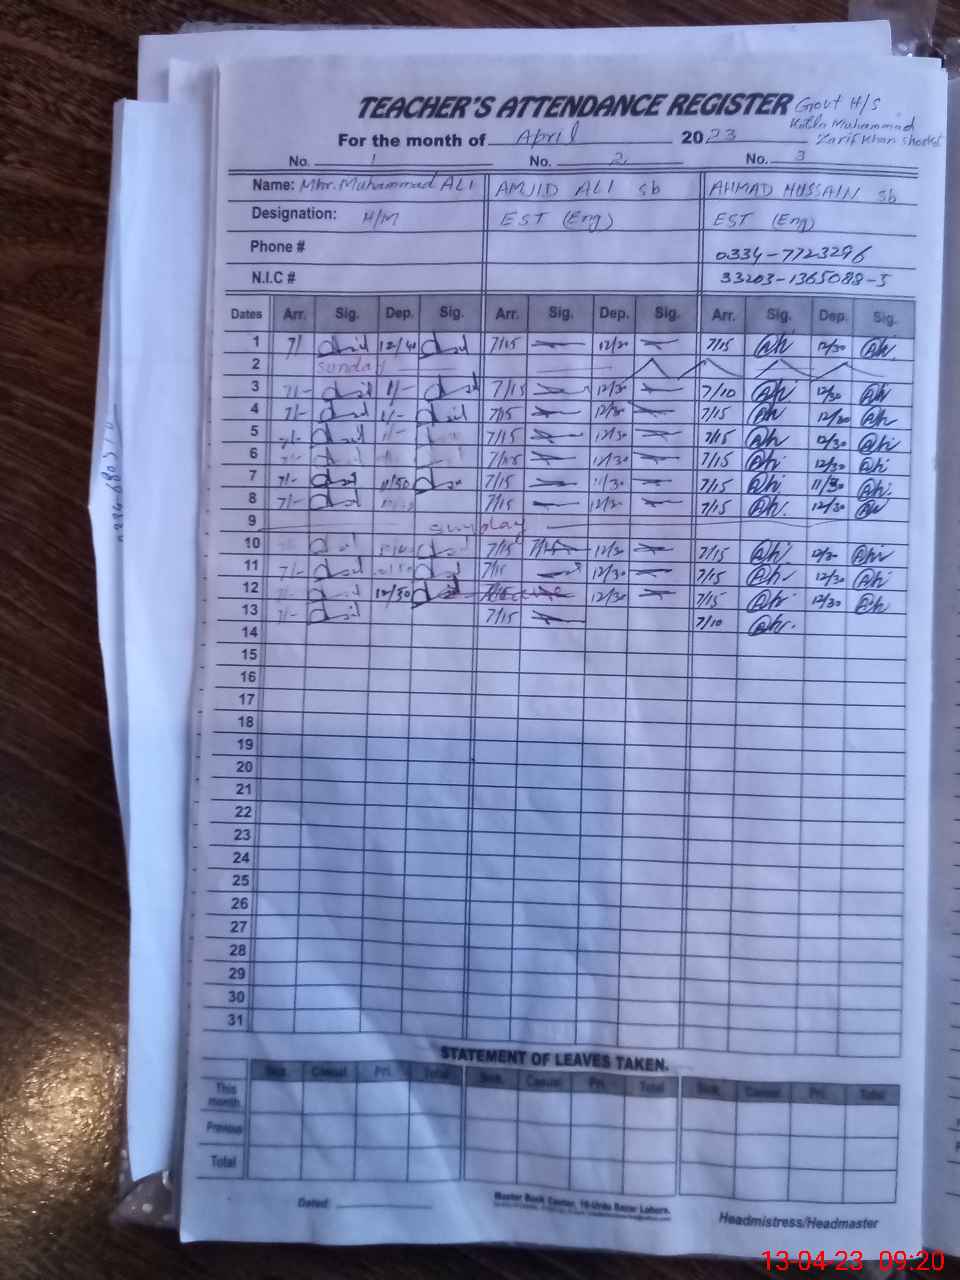 TEACHER'S ATTENDANCE REGISTER Govt H/S
Kotla Muhammad
For the month of April 2023 Zarif Khan
No. 1 No. 2 No. 3
Name: Mhr. Muhammad ALI AMJID ALI sb AHMAD HUSSAIN sb
Designation: H/M EST (Eng) EST (Eng)
Phone # 0334-7723296
N.I.C # 33203-1365088-5
Dates Arr. Sig. Dep. Sig. Arr. Sig. Dep. Sig. Arr. Sig. Dep. Sig.
1 7/- 12/40 7/15 12/30 7/15 12/30
2 sunday
3 7/- 11/- 7/15 12/30 7/10 12/30
4 7/- 11/- 7/15 12/30 7/15 12/30
5 7/- 11/- 7/15 12/30 7/15 12/30
6 7/15 12/30 7/15 12/30
7 7/- 11/50 7/15 11/30 7/15 11/30
8 7/- 7/15 12/30 7/15 12/30
9 sunday
10 7/15 7/15 12/30 7/15 12/30
11 7/- 7/15 12/30 7/15 12/30
12 12/30 12/30 7/15 12/30
13 7/- 7/15 7/10
14
15
16
17
18
19
20
21
22
23
24
25
26
27
28
29
30
31
STATEMENT OF LEAVES TAKEN.
Sick. Casual Pri. Total Sick. Casual Pri. Total Sick. Casual Pri. Total
This month
Previous
Total
Dated:
Master Book Center, 16-Urdu Bazar Lahore.
Headmistress/Headmaster
13-04-23 09:20